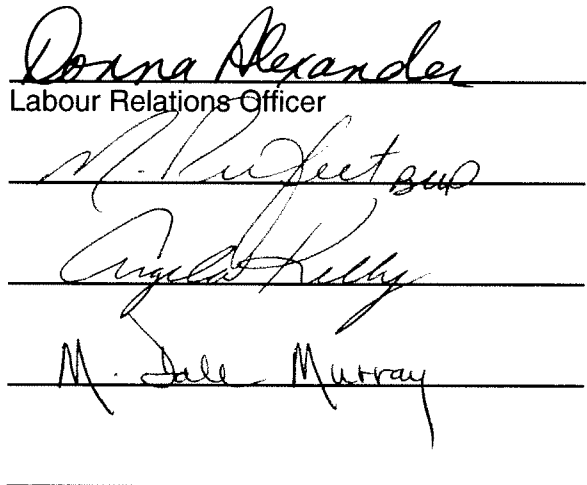 Donna Alexander
Labour Relations Officer
M. Perfect BUP
Angela Kelly
M. Dale Murray